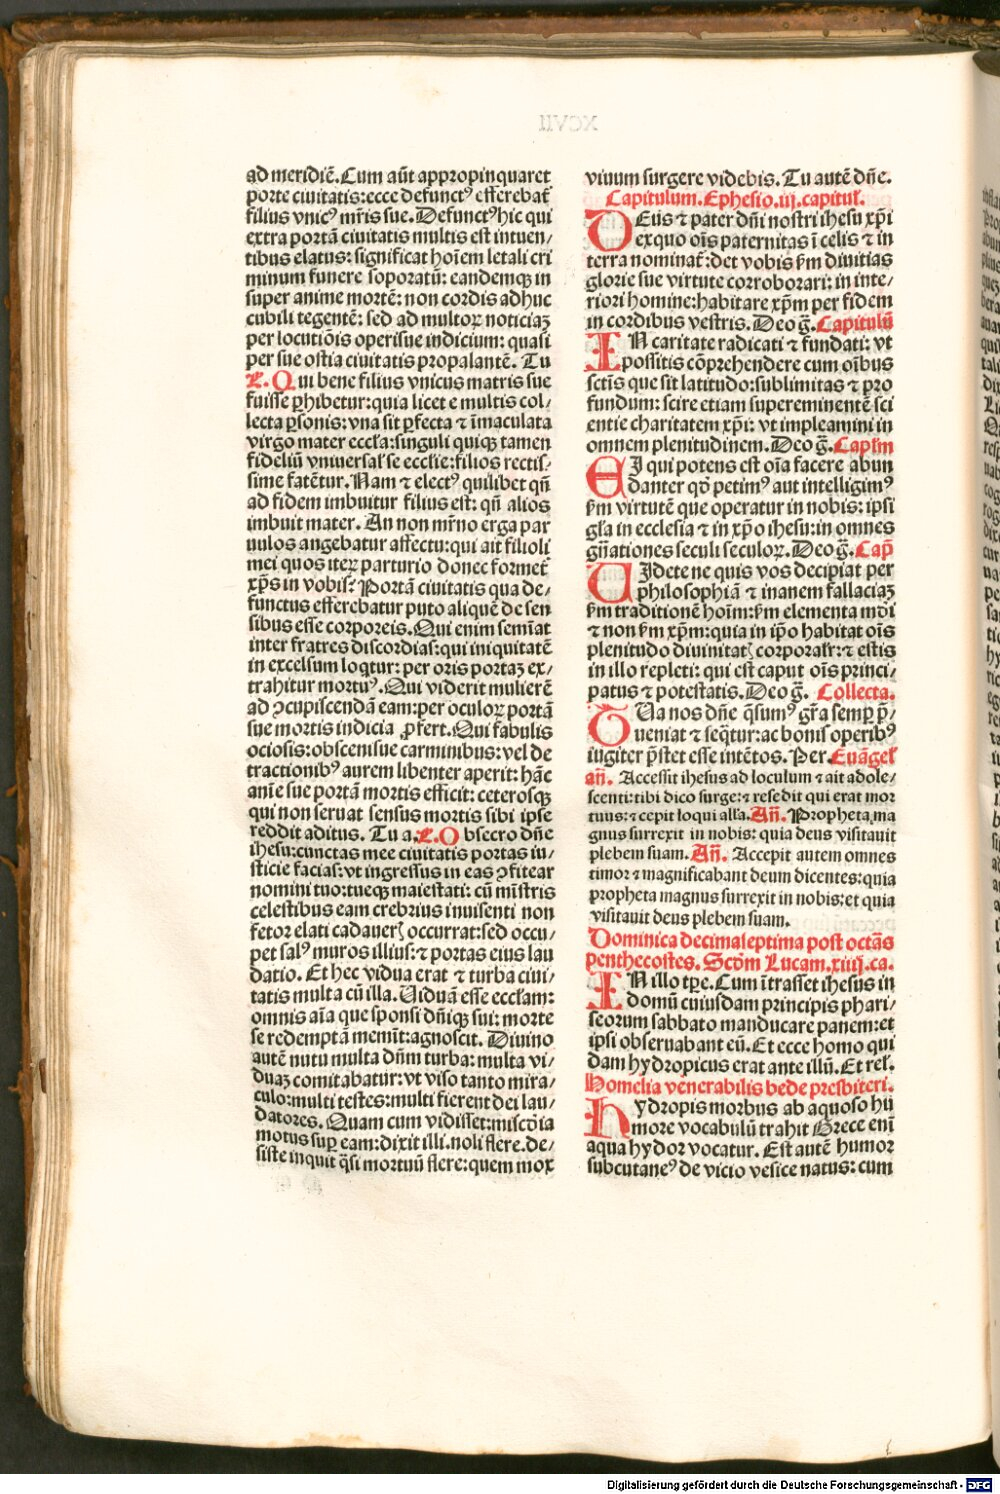 ad meridiē. Cum aūt appropinquaret
porte ciuitatis: ecce defunctꝰ efferebat̄
filius vnicꝰ mr̄is sue. Defunctꝰ hic qui
extra portā ciuitatis multis est intuen/
tibus elatus: significat hoīem letali cri
minum funere soporatū: eandemqꝫ in
super anime mortē: non cordis adhuc
cubili tegentē: sed ad multoꝝ noticiaꝫ
per locutiōis operisue indicium: quasi
per sue ostia ciuitatis propalantē. Tu
L. Qui bene filius vnicus matris sue
fuisse ꝑhibetur: quia licet e multis col/
lecta ꝑsonis: vna sit ꝑfecta ⁊ īmaculata
virgo mater eccl̄a: singuli quiqꝫ tamen
fideliū vniuersal̄ se ecclie: filios rectis/
sime fatētur. Nam ⁊ electꝰ quilibet qn̄
ad fidem imbuitur filius est: qn̄ alios
imbuit mater. An non mr̄no erga par
uulos angebatur affectu: qui ait filioli
mei quos iteꝝ parturio donec formet̄
xp̄s in vobis? Portā ciuitatis qua de/
functus efferebatur puto aliquē de sen
sibus esse corporeis. Qui enim semīat
inter fratres discordias: qui iniquitatē
in excelsum loqtur: per oris portaꝫ ex/
trahitur mortuꝰ. Qui viderit mulierē
ad ꝯcupiscendā eam: per oculoꝝ portā
sue mortis indicia ꝓfert. Qui fabulis
ociosis: obscenisue carminibus: vel de
tractionibꝰ aurem libenter aperit: hāc
anīe sue portā mortis efficit: ceterosqꝫ
qui non seruat sensus mortis sibi ipse
reddit aditus. Tu a. L. Obsecro dn̄e
ihesu: cunctas mee ciuitatis portas iu/
sticie facias: vt ingressus in eas ꝯfitear
nomini tuo: tueqꝫ maiestati: cū mīstris
celestibus eam crebrius inuisenti non
fetor elati cadaueris occurrat: sed occu/
pet salꝰ muros illius: ⁊ portas eius lau
datio. Et hec vidua erat ⁊ turba ciui/
tatis multa cū illa. Uiduā esse eccl̄am:
omnis aīa que sponsi dn̄iqꝫ sui: morte
se redemptā memīt: agnoscit. Diuino
autē nutu multa dn̄m turba: multa vi/
duaꝫ comitabatur: vt viso tanto mira/
culo: multi testes: multi fierent dei lau/
datores. Quam cum vidisset: miscōia
motus suꝑ eam: dixit illi. noli flere. de/
siste inquit q̄si mortuū flere: quem mox
viuum surgere videbis. Tu autē dn̄e.
Capitulum. Ephesio. iij. capitul̄.
DEus ⁊ pater dn̄i nostri ihesu xp̄i
ex quo oīs paternitas ī celis ⁊ in
terra nominat̄: det vobis ẜm diuitias
glorie sue virtute corroborari: in inte/
riori homine: habitare xp̄m per fidem
in cordibus vestris. Deo gr̄. Capitulū
IN caritate radicati ⁊ fundati: vt
possitis cōprehendere cum oībus
sctīs que sit latitudo: sublimitas ⁊ pro
fundum: scire etiam supereminentē sci
entie charitatem xp̄i: vt impleamini in
omnem plenitudinem. Deo gr̄. Capl̄m
EI qui potens est oīa facere abun
danter qꝫ petimꝰ aut intelligimꝰ
ẜm virtutē que operatur in nobis: ipsi
gl̄a in ecclesia ⁊ in xp̄o ihesu: in omnes
gn̄ationes seculi seculoꝝ. Deo gr̄. Cap̄
UIdete ne quis vos decipiat per
philosophiā ⁊ inanem fallaciaꝫ
ẜm traditionē hoīm: ẜm elementa mūdi
⁊ non ẜm xp̄m: quia in ip̄o habitat oīs
plenitudo diuinitatis corporalr̄: ⁊ estis
in illo repleti: qui est caput oīs princi/
patus ⁊ potestatis. Deo gr̄. Collecta.
TUa nos dn̄e q̄sumꝰ gr̄a semꝑ p̄/
ueniat ⁊ seq̄tur: ac bonis operibꝰ
iugiter p̄stet esse intētos. Per. Euāgel̄
an̄. Accessit ihesus ad loculum ⁊ ait adole/
scenti: tibi dico surge: ⁊ resedit qui erat mor
tuus: ⁊ cepit loqui all'a. An̄. Propheta ma
gnus surrexit in nobis: quia deus visitauit
plebem suam. An̄. Accepit autem omnes
timor ⁊ magnificabant deum dicentes: quia
propheta magnus surrexit in nobis: et quia
visitauit deus plebem suam.
Dominica decimaseptima post octāᵃs
penthecostes. Scdm Lucam. xiiij. ca.
IN illo tꝑe. Cum ītrasset ihesus in
domū cuiusdam principis phari/
seorum sabbato manducare panem: et
ipsi obseruabant eū. Et ecce homo qui
dam hydropicus erat ante illū. Et rel̄.
Homelia venerabilis bede presbiteri.
HYdropis morbus ab aquoso hū
more vocabulū trahit Grece enī
aqua hydor vocatur. Est autē humor
subcutaneꝰ de vicio vesice natus: cum
Digitalisierung gefördert durch die Deutsche Forschungsgemeinschaft - DFG